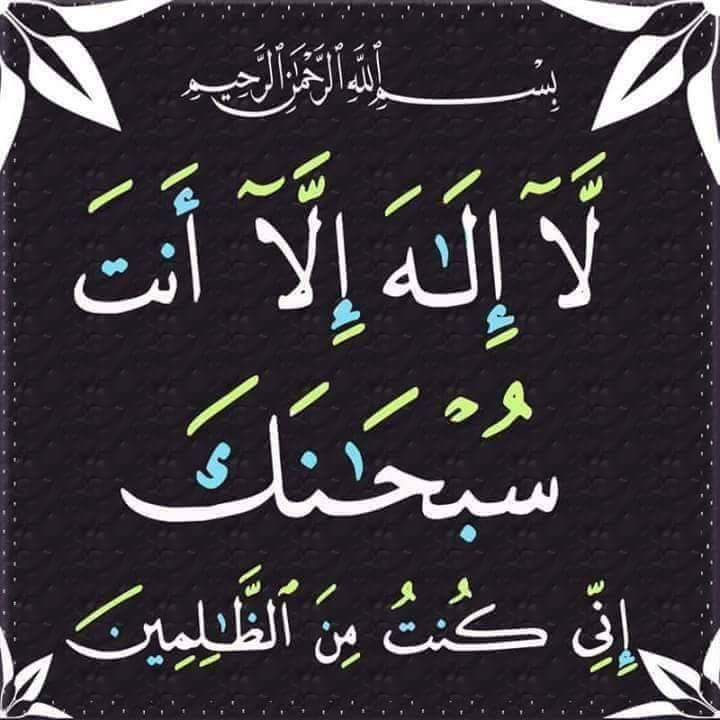 بِسْمِ ٱللَّهِ ٱلرَّحْمَٰنِ ٱلرَّحِيمِ
لَّآ إِلَـٰهَ إِلَّآ أَنتَ
سُبْحَـٰنَكَ
إِنِّى كُنتُ مِنَ ٱلظَّـٰلِمِينَ